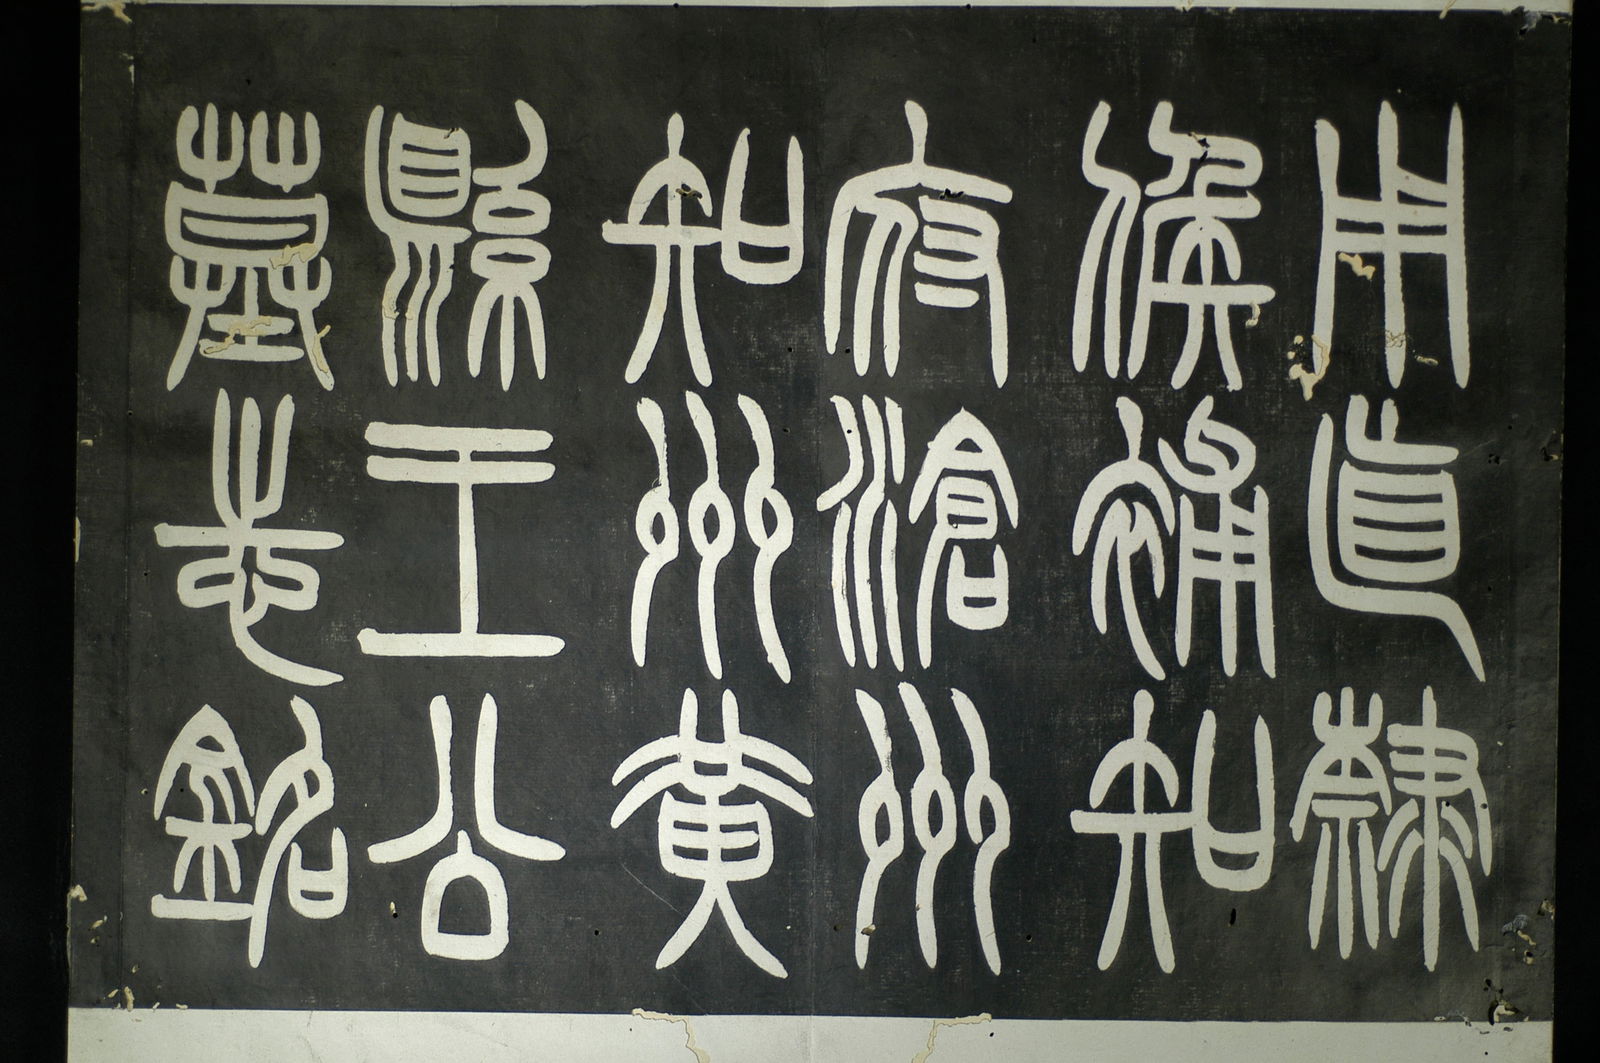 用直隸
候補知
府滄州
知州黃
縣王公
墓志銘